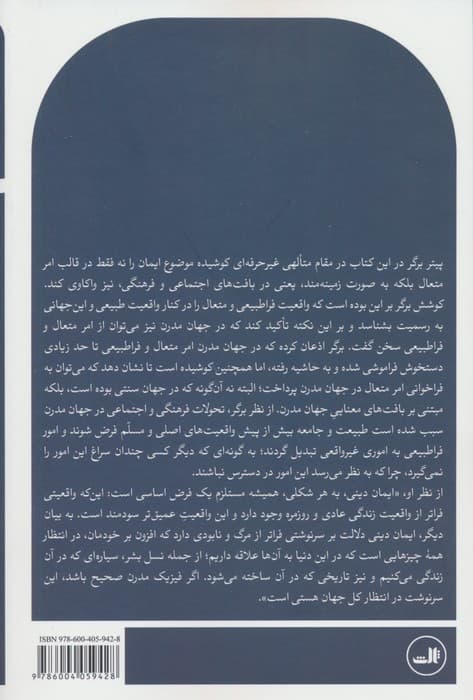 پیتر برگر در این کتاب در مقام متألهی غیرحرفه‌ای کوشیده موضوع ایمان را نه فقط در قالب امر
متعال بلکه به صورت زمینه‌مند، یعنی در بافت‌های اجتماعی و فرهنگی، نیز واکاوی کند.
کوشش برگر بر این بوده است که واقعیت فراطبیعی و متعال را در کنار واقعیت طبیعی و این‌جهانی
به رسمیت بشناسد و بر این نکته تأکید کند که در جهان مدرن نیز می‌توان از امر متعال و
فراطبیعی سخن گفت. برگر اذعان کرده که در جهان مدرن امر متعال و فراطبیعی تا حد زیادی
دستخوش فراموشی شده و به حاشیه رفته، اما همچنین کوشیده است تا نشان دهد که می‌توان به
فراخوانی امر متعال در جهان مدرن پرداخت؛ البته نه آن‌گونه که در جهان سنتی بوده است، بلکه
مبتنی بر بافت‌های معنایی جهان مدرن. از نظر برگر، تحولات فرهنگی و اجتماعی در جهان مدرن
سبب شده است طبیعت و جامعه بیش از پیش واقعیت‌های اصلی و مسلّم فرض شوند و امور
فراطبیعی به اموری غیرواقعی تبدیل گردند؛ به گونه‌ای که دیگر کسی چندان سراغ این امور را
نمی‌گیرد، چرا که به نظر می‌رسد این امور در دسترس نباشند.
از نظر او، «ایمان دینی، به هر شکلی، همیشه مستلزم یک فرض اساسی است: این‌که واقعیتی
فراتر از واقعیت زندگی عادی و روزمره وجود دارد و این واقعیتِ عمیق‌تر سودمند است. به بیان
دیگر، ایمان دینی دلالت بر سرنوشتی فراتر از مرگ و نابودی دارد که افزون بر خودمان، در انتظار
همۀ چیزهایی است که در این دنیا به آن‌ها علاقه داریم؛ از جمله نسل بشر، سیاره‌ای که در آن
زندگی می‌کنیم و نیز تاریخی که در آن ساخته می‌شود. اگر فیزیک مدرن صحیح باشد، این
سرنوشت در انتظار کل جهان هستی است».
ISBN 978-600-405-942-8
9 786004 059428
ثالث